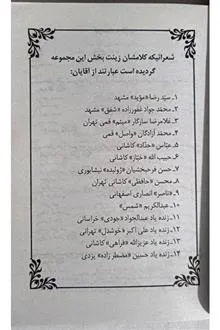 شعرائیکه کلامشان زینت بخش این مجموعه
گردیده است عبارتند از آقایان:
۱- سیّد رضا «مؤید» مشهد
۲- محمّد جواد غفورزاده «شفق» مشهد
۳- غلامرضا سازگار «میثم» قمی تهران
۴- محمد آزادگان «واصل» قمی
۵- عبّاس «حدّاد» کاشانی
۶- حبیب الله «خبّاز» کاشانی
۷- حسن فرحبخشیان «ژولیده» نیشابوری
۸- محسن «حافظی» کاشانی تهران
۹- «ناصر» انصاری اصفهانی
۱۰- عبدالکریم «شمس»
۱۱- زنده یاد عبدالجواد «جودی» خراسانی
۱۲- زنده یاد علی اکبر «خوشدل» تهرانی
۱۳- زنده یاد عزیزالله «فراهی» کاشانی
۱۴- زنده یاد حسین «مضطر زاده» یزدی